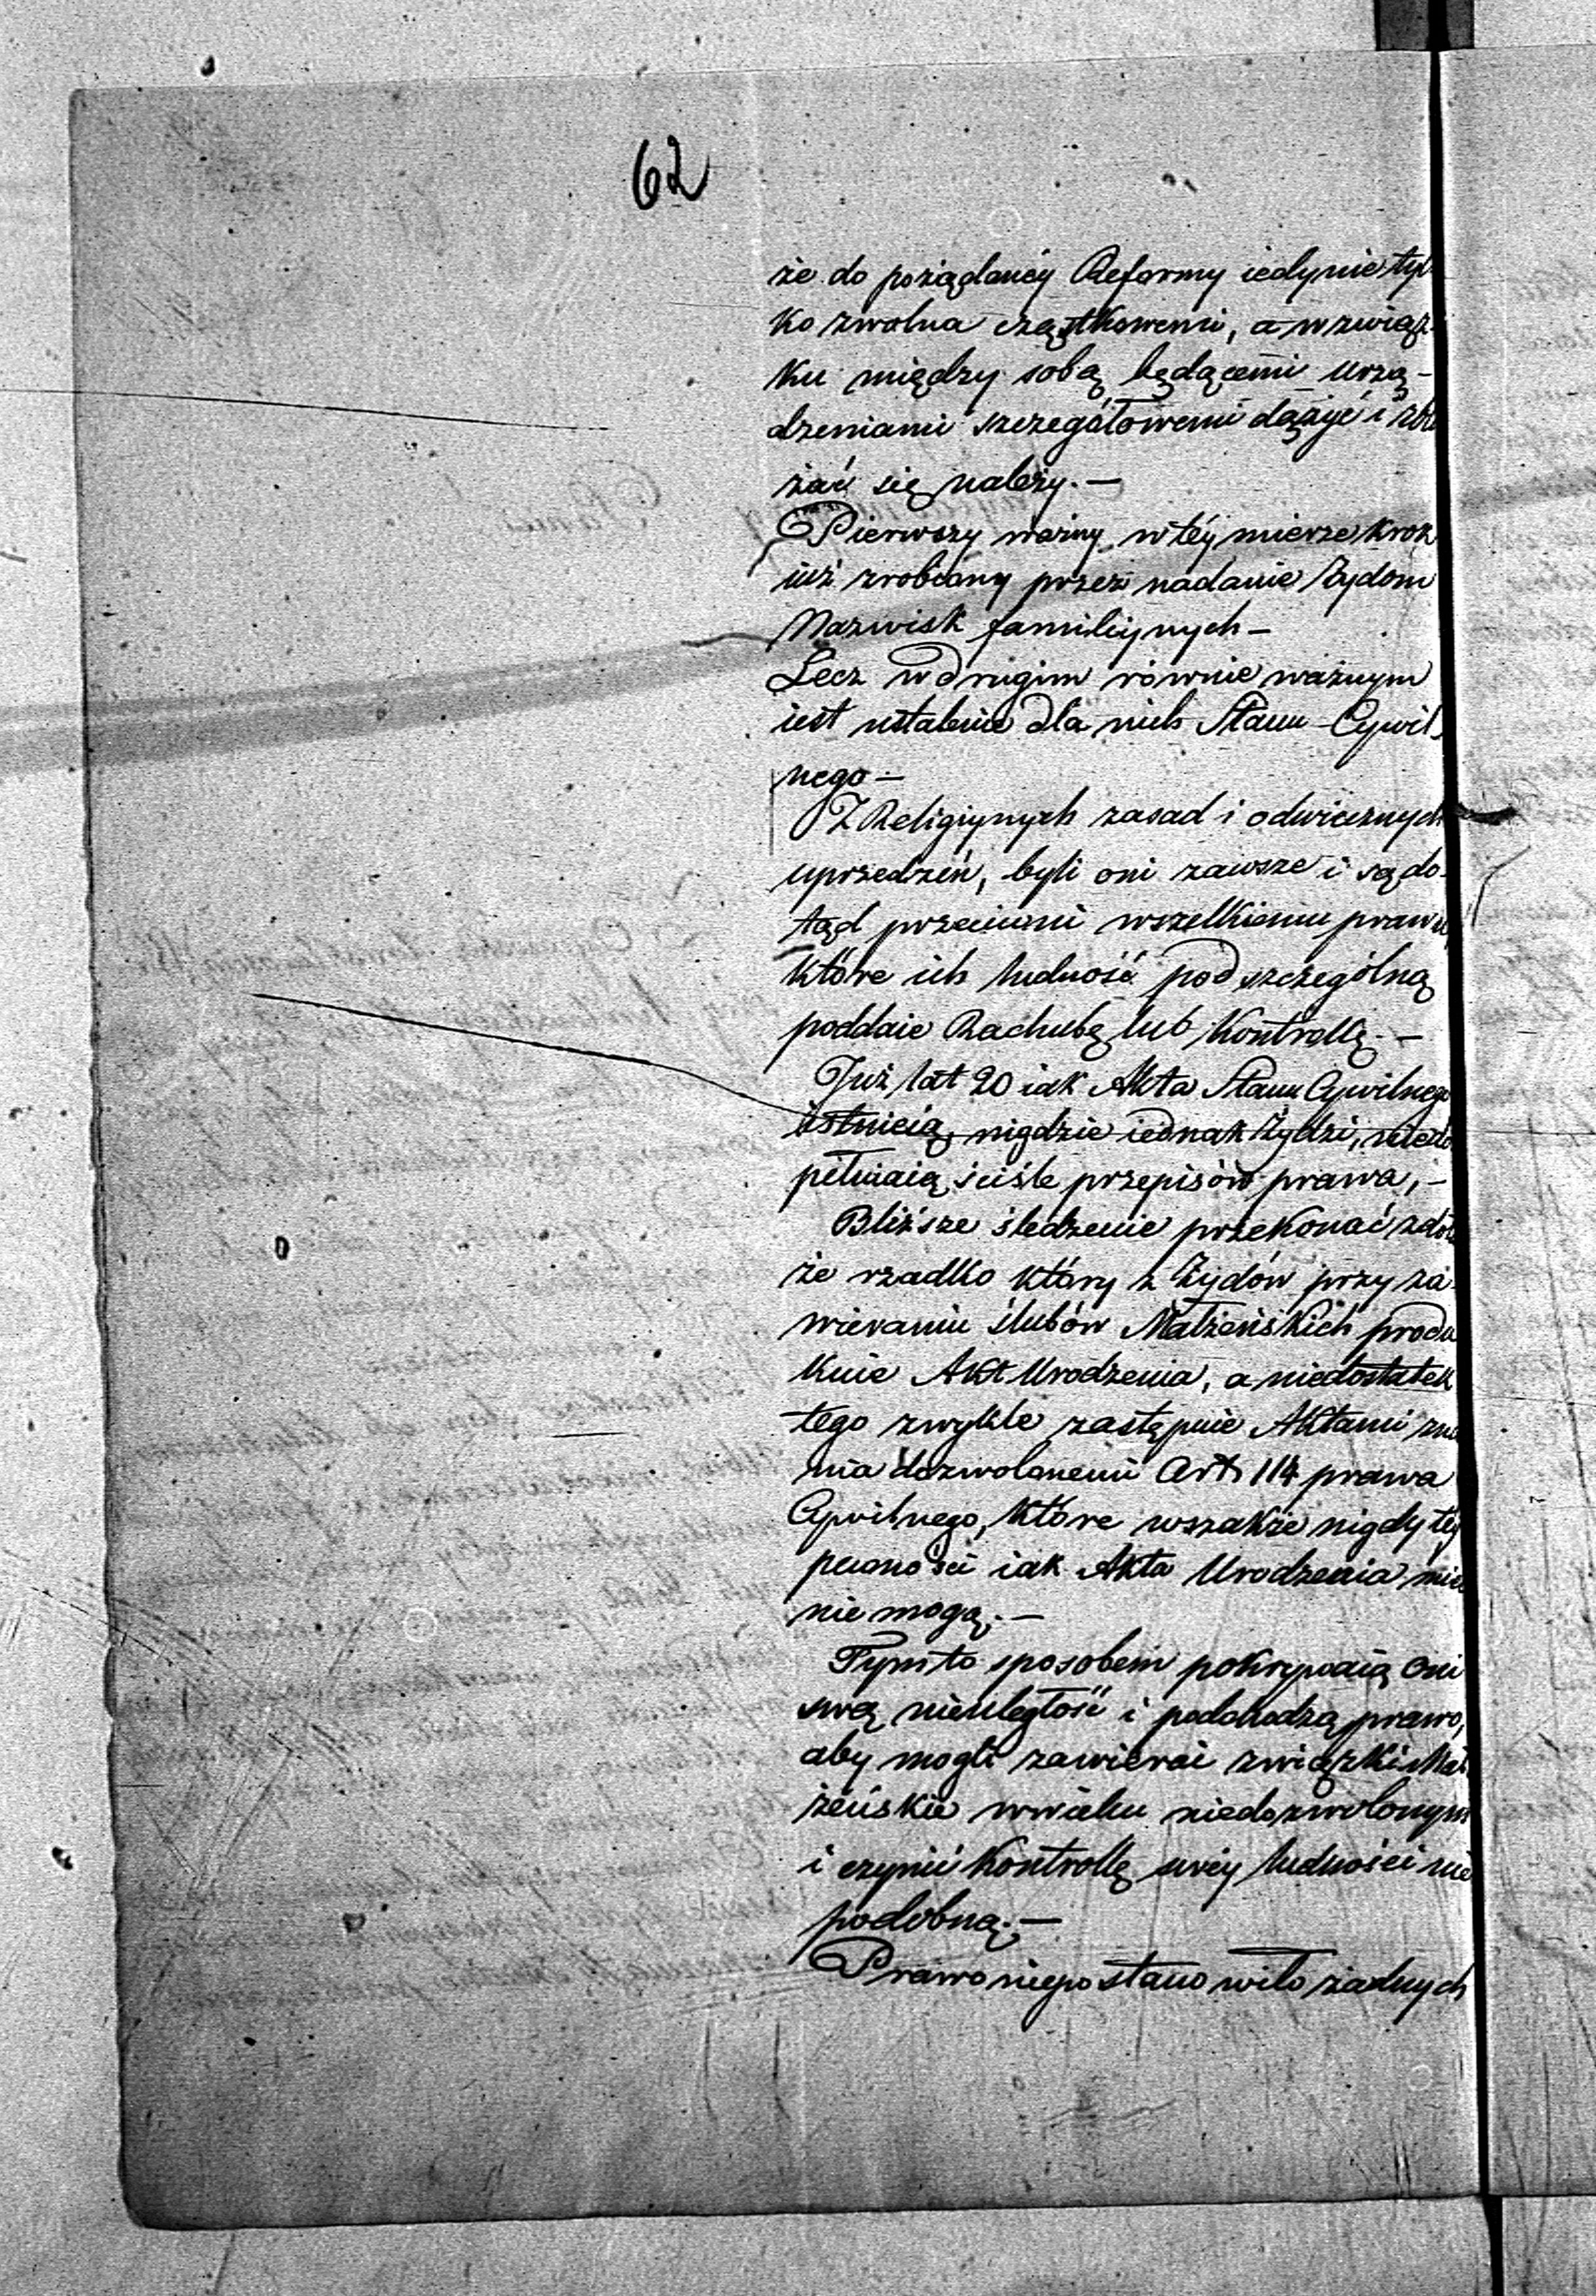 62
że do pożądanéy Reformy iedynie tyl
ko zwolna cząstkowemi, a w związ-
ku między sobą będącemi urzą-
dzeniami szczegółowemi dążyć i zbli
żać się należy.—
Pierwszy ważny w téy mierze krok
iuż zrobiony przez nadanie Żydom
Nazwisk familiynych—
Lecz w drugim równie ważnym
iest ustalenie dla nich Stanu-Cywil-
nego—
Z Religiynych zasad i odwiecznych
uprzedzeń, byli oni zawsze i są do-
tąd przeciwni wszelkiemu prawu
które ich ludność pod szczególną
poddaie Rachubę lub Kontrollę.—
Już lat 20 iak Akta Stanu Cywilnego
istnieią, nigdzie iednak Żydzi, niedo
pełniaią ściśle przepisów prawa,—
Bliższe śledzenie przekonać zdoła
że rzadko który z Żydów przy za-
wieraniu ślubów Małżeńskich produ
kuie Akt Urodzenia, a niedostatek
tego zwykle zastępuie Aktami zna
nia dozwolonemi Art. 114 prawa
Cywilnego, które wszakże nigdy téy
pewności iak Akta Urodzenia mieć
nie mogą.—
Tym to sposobem pokrywaią oni
swą nieuległość i podchodzą prawo,
aby mogli zawierać związki Mał
żeńskie w wieku niedozwolonym
i czynić Kontrollę swéy ludności nie
podobną.—
Prawo niepostanowiło żadnych